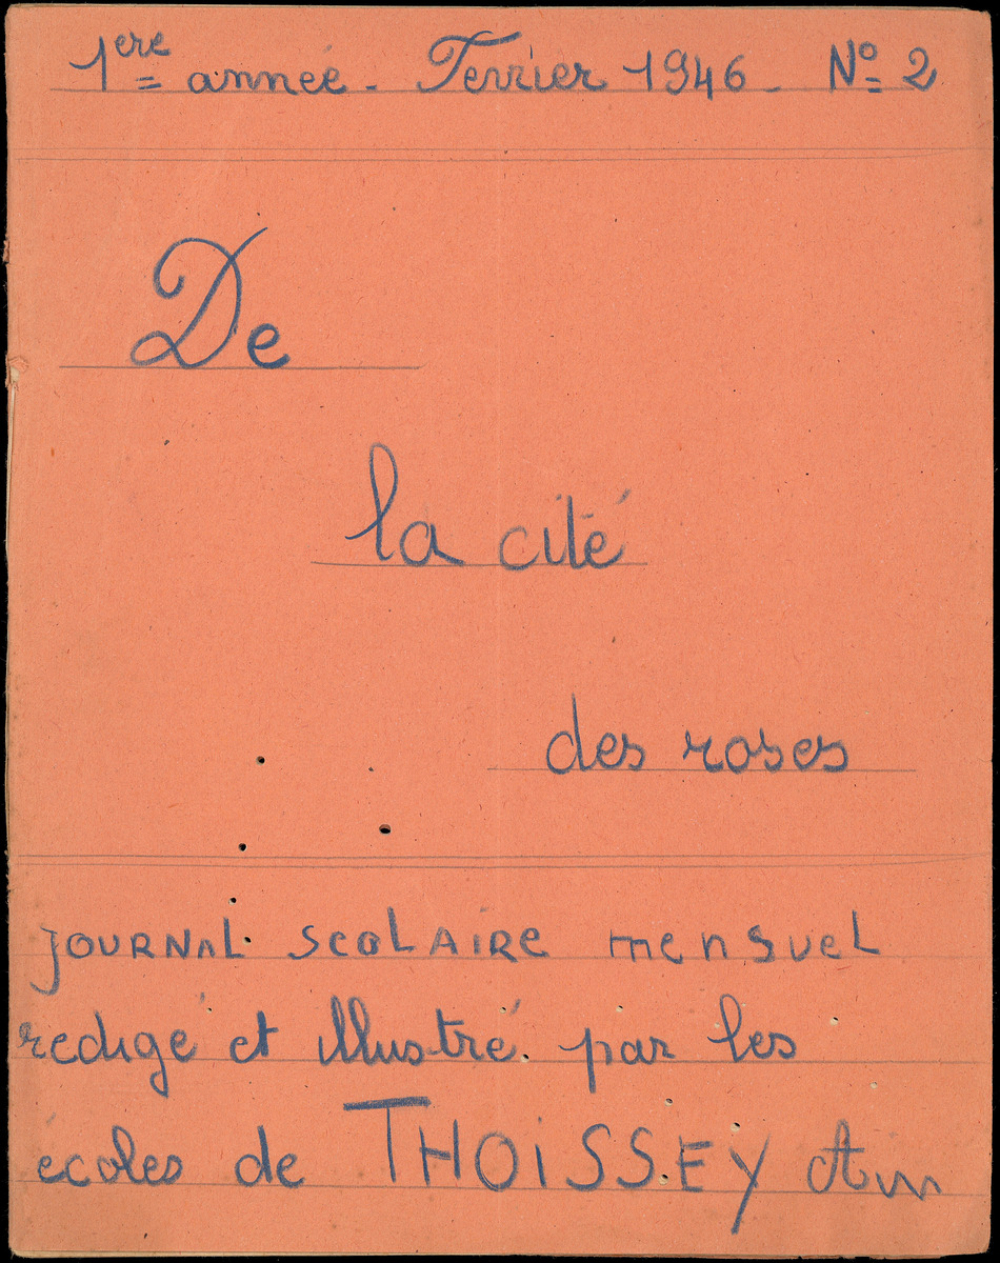 1ère année - Février 1946 - Nº 2
De
la cité
des roses
JOURNAL SCOLAIRE mensuel
rédigé et illustré par les
écoles de THOISSEY Ain